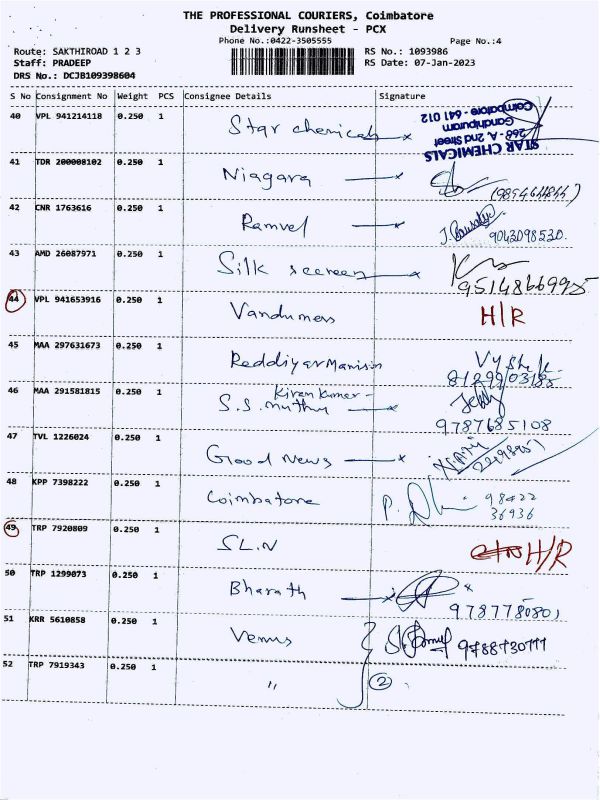 THE PROFESSIONAL COURIERS, Coimbatore
Delivery Runsheet - PCX
Phone No.:0422-3505555
Page No.:4
Route: SAKTHIROAD 1 2 3
RS No.: 1093986
Staff: PRADEEP
RS Date: 07-Jan-2023
DRS No.: DCJB109398604
S No Consignment No Weight PCS Consignee Details Signature
40 VPL 941214118 0.250 1 Star chemicals
STAR CHEMICALS
268 - A, 2nd Street
Gandhipuram
Coimbatore - 641 012
41 TDR 200008102 0.250 1 Niagara
42 CNR 1763616 0.250 1 Ramvel 9043098530.
43 AMD 26087971 0.250 1 Silk screen 9514866995
44 VPL 941653916 0.250 1 Vandumers H/R
45 MAA 297631673 0.250 1 Reddiyar Mansion
46 MAA 291581815 0.250 1 Kiran kumar -
S.S. muthu 9787685108
47 TVL 1226024 0.250 1 Good News
48 KPP 7398222 0.250 1 Coimbatore 98422
36936
49 TRP 7920809 0.250 1 S.L.N H/R
50 TRP 1299073 0.250 1 Bharath
51 KRR 5610858 0.250 1 Venus
52 TRP 7919343 0.250 1 " 2